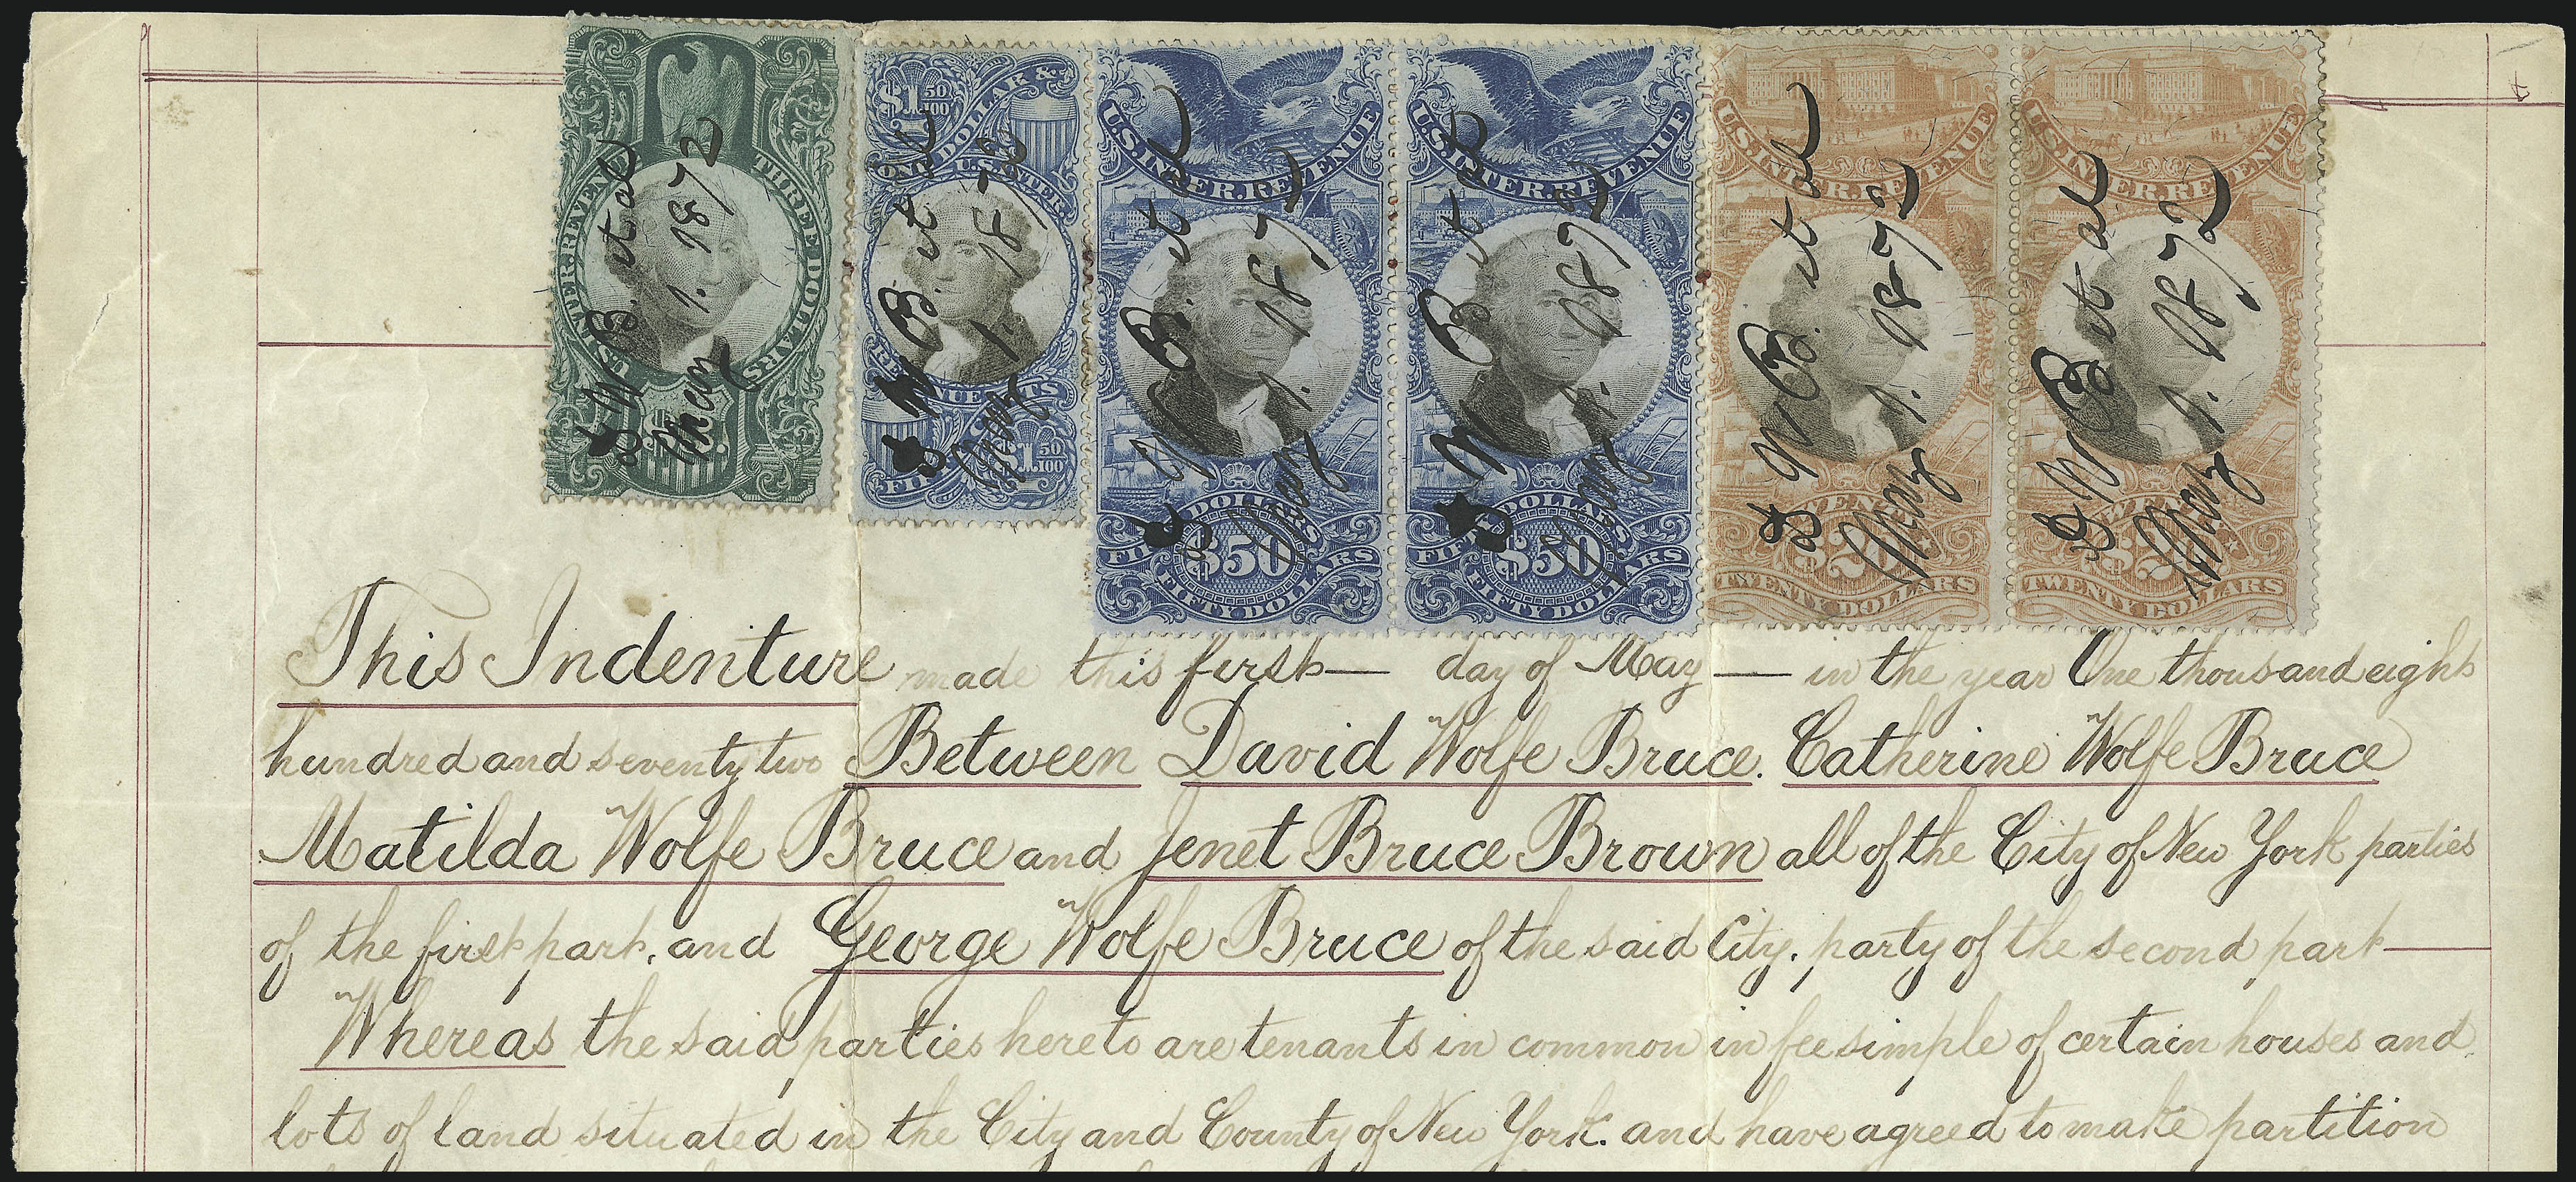 U.S. INTER. REVENUE THREE DOLLARS
D W B. et al
May 1. 1872
$1 50/100 ONE DOLLAR &
U.S. INTER. REVENUE
FIFTY CENTS $1 50/100
D W B. et al
May 1. 1872
U.S. INTER. REVENUE
DOLLARS
$50
FIFTY DOLLARS
D W B. et al
May 1. 1872
U.S. INTER. REVENUE
DOLLARS
$50
FIFTY DOLLARS
D W B et al
May 1. 1872
U.S. INTER. REVENUE
TWENTY
$20
TWENTY DOLLARS
D W B. et al
May 1. 1872
U.S. INTER. REVENUE
TWENTY
$20
TWENTY DOLLARS
D W B et al
May 1. 1872
This Indenture made this first — day of May — in the year One thousand eight
hundred and seventy two Between David Wolfe Bruce. Catherine Wolfe Bruce
Matilda Wolfe Bruce and Jenet Bruce Brown all of the City of New York parties
of the first part, and George Wolfe Bruce of the said City, party of the second part —
Whereas the said parties hereto are tenants in common in fee simple of certain houses and
lots of land situated in the City and County of New York. and have agreed to make partition